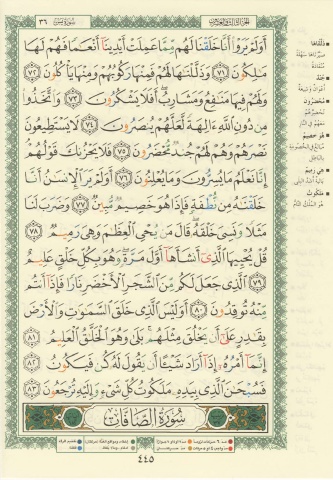 الجزء الثالث والعشرون
سورة يس ٣٦
أَوَلَمْ يَرَوْا۟ أَنَّا خَلَقْنَا لَهُم مِّمَّا عَمِلَتْ أَيْدِينَآ أَنْعَٰمًا فَهُمْ لَهَا
مَٰلِكُونَ ٧١ وَذَلَّلْنَٰهَا لَهُمْ فَمِنْهَا رَكُوبُهُمْ وَمِنْهَا يَأْكُلُونَ ٧٢
وَلَهُمْ فِيهَا مَنَٰفِعُ وَمَشَارِبُ أَفَلَا يَشْكُرُونَ ٧٣ وَٱتَّخَذُوا۟
مِن دُونِ ٱللَّهِ ءَالِهَةً لَّعَلَّهُمْ يُنصَرُونَ ٧٤ لَا يَسْتَطِيعُونَ
نَصْرَهُمْ وَهُمْ لَهُمْ جُندٌ مُّحْضَرُونَ ٧٥ فَلَا يَحْزُنكَ قَوْلُهُمْ
إِنَّا نَعْلَمُ مَا يُسِرُّونَ وَمَا يُعْلِنُونَ ٧٦ أَوَلَمْ يَرَ ٱلْإِنسَٰنُ أَنَّا
خَلَقْنَٰهُ مِن نُّطْفَةٍ فَإِذَا هُوَ خَصِيمٌ مُّبِينٌ ٧٧ وَضَرَبَ لَنَا
مَثَلًا وَنَسِىَ خَلْقَهُۥ قَالَ مَن يُحْىِ ٱلْعِظَٰمَ وَهِىَ رَمِيمٌ ٧٨
قُلْ يُحْيِيهَا ٱلَّذِىٓ أَنشَأَهَآ أَوَّلَ مَرَّةٍ وَهُوَ بِكُلِّ خَلْقٍ عَلِيمٌ
٧٩ ٱلَّذِى جَعَلَ لَكُم مِّنَ ٱلشَّجَرِ ٱلْأَخْضَرِ نَارًا فَإِذَآ أَنتُم
مِّنْهُ تُوقِدُونَ ٨٠ أَوَلَيْسَ ٱلَّذِى خَلَقَ ٱلسَّمَٰوَٰتِ وَٱلْأَرْضَ
بِقَٰدِرٍ عَلَىٰٓ أَن يَخْلُقَ مِثْلَهُم بَلَىٰ وَهُوَ ٱلْخَلَّٰقُ ٱلْعَلِيمُ ٨١
إِنَّمَآ أَمْرُهُۥٓ إِذَآ أَرَادَ شَيْـًٔا أَن يَقُولَ لَهُۥ كُن فَيَكُونُ ٨٢
فَسُبْحَٰنَ ٱلَّذِى بِيَدِهِۦ مَلَكُوتُ كُلِّ شَىْءٍ وَإِلَيْهِ تُرْجَعُونَ ٨٣
سُورَةُ الصَّافَّاتِ
٤٤٥